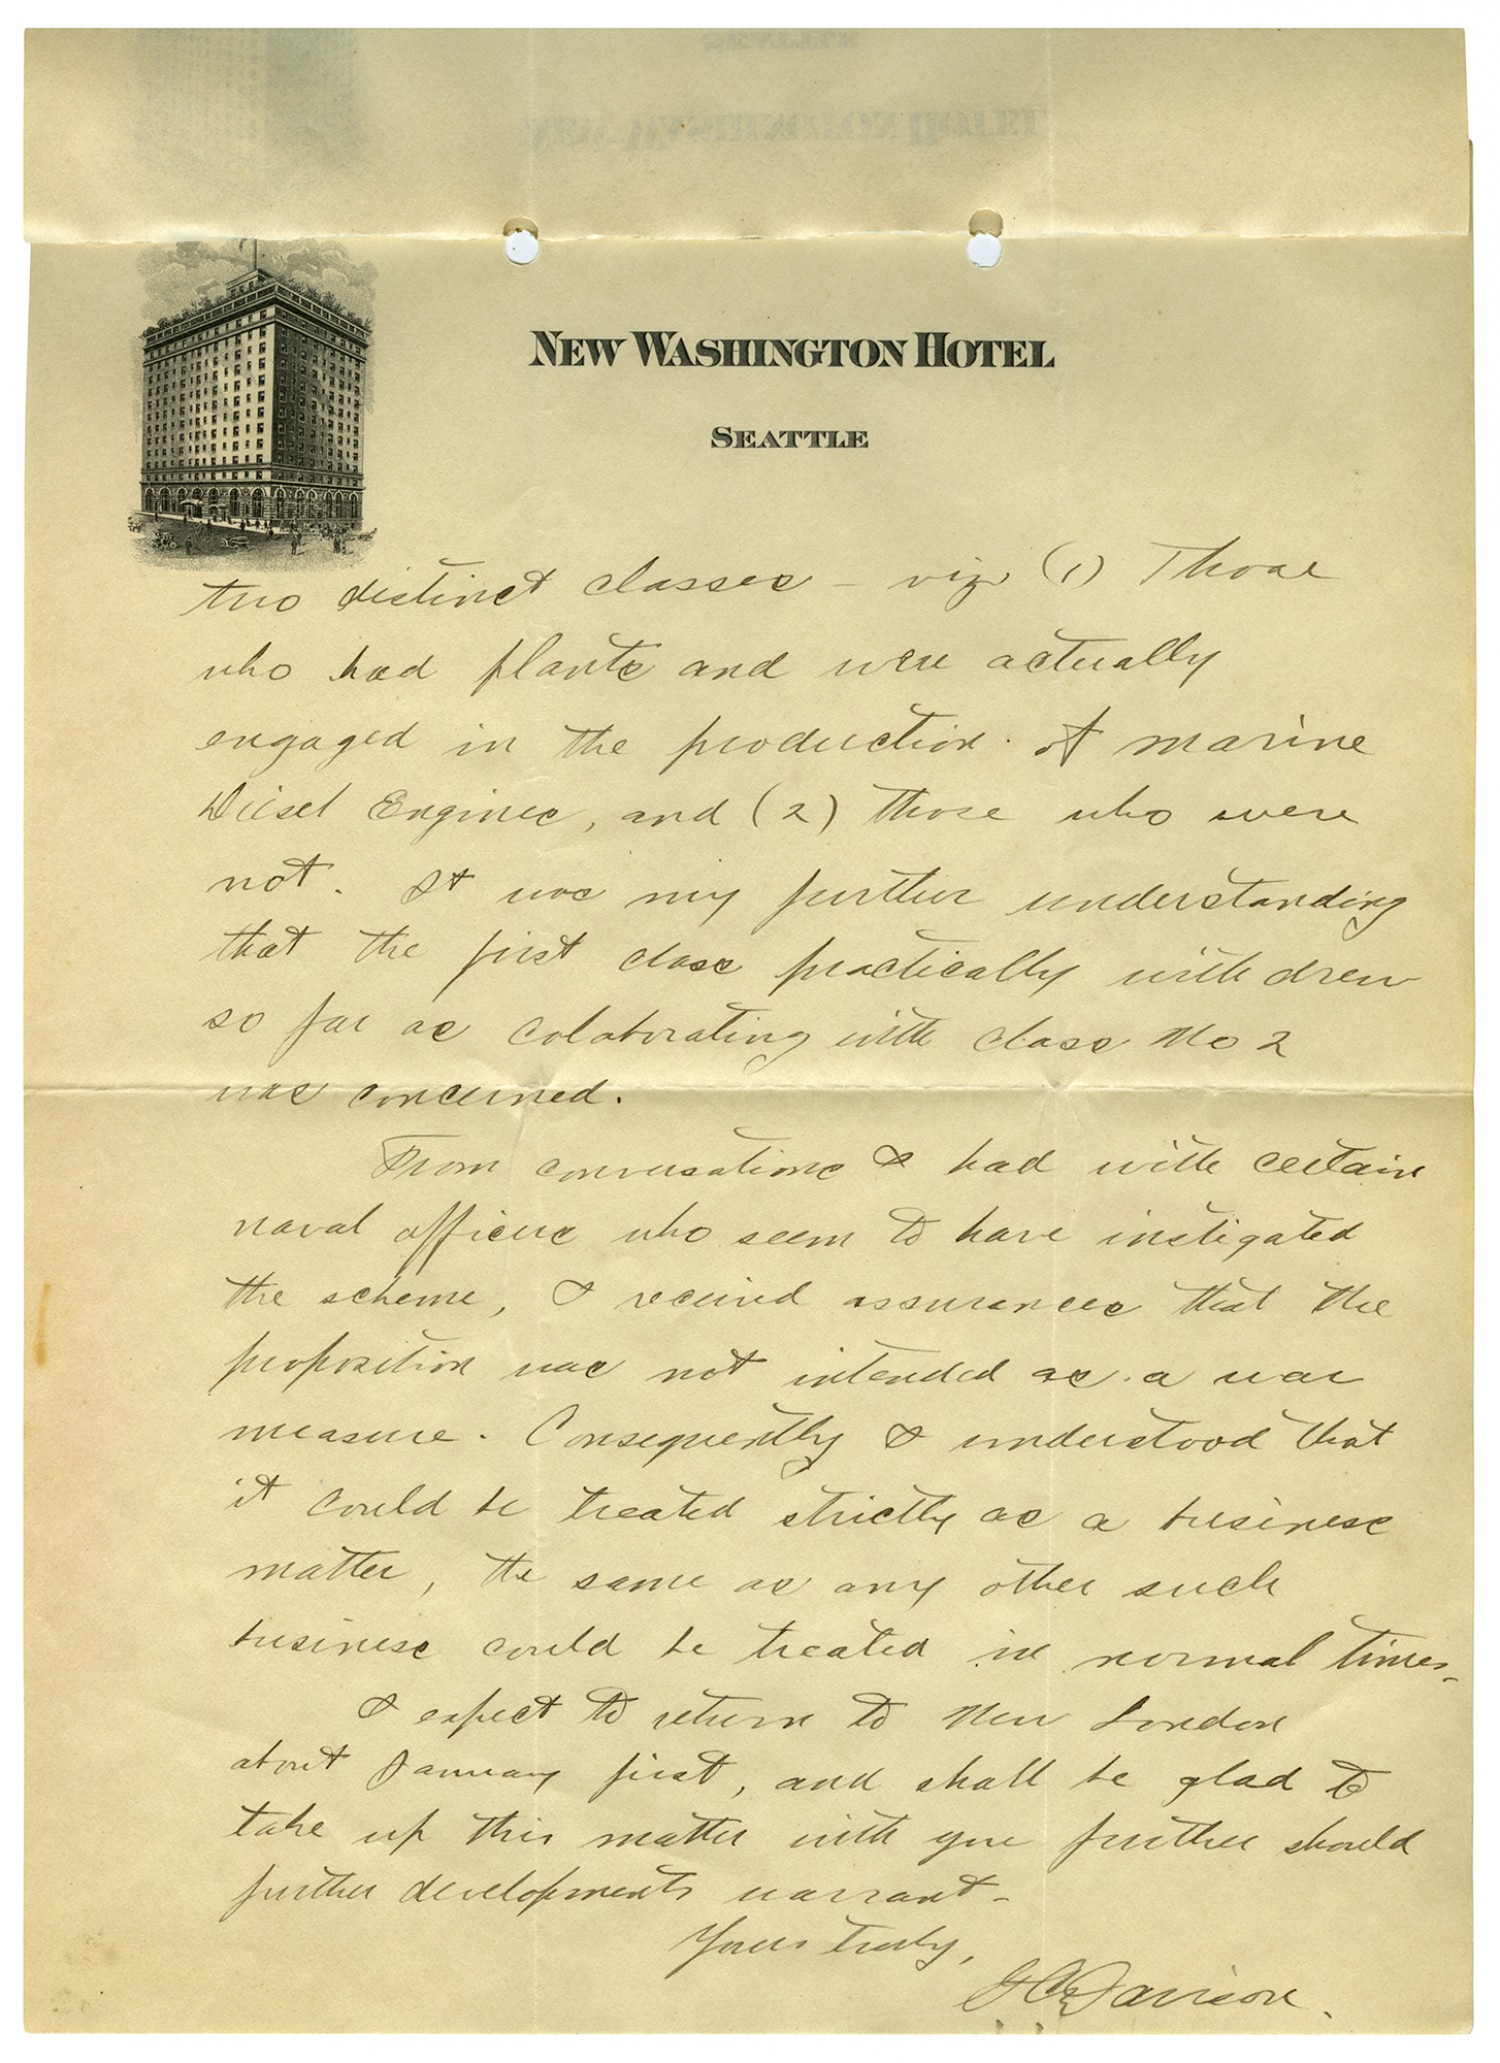 NEW WASHINGTON HOTEL
SEATTLE
two distinct classes – viz (1) Those
who had plants and were actually
engaged in the production of marine
Diesel Engines, and (2) those who were
not. It was my further understanding
that the first class practically with drew
so far as colaborating with class No 2
was concerned.
From conversations I had with certain
naval officers who seem to have instigated
the scheme, I received assurances that the
proposition was not intended as a war
measure. Consequently I understood that
it could be treated strictly as a business
matter, the same as any other such
business could be treated in normal times.
I expect to return to New London
about January first, and shall be glad to
take up this matter with you further should
further developments warrant.
Yours truly,
Davison.